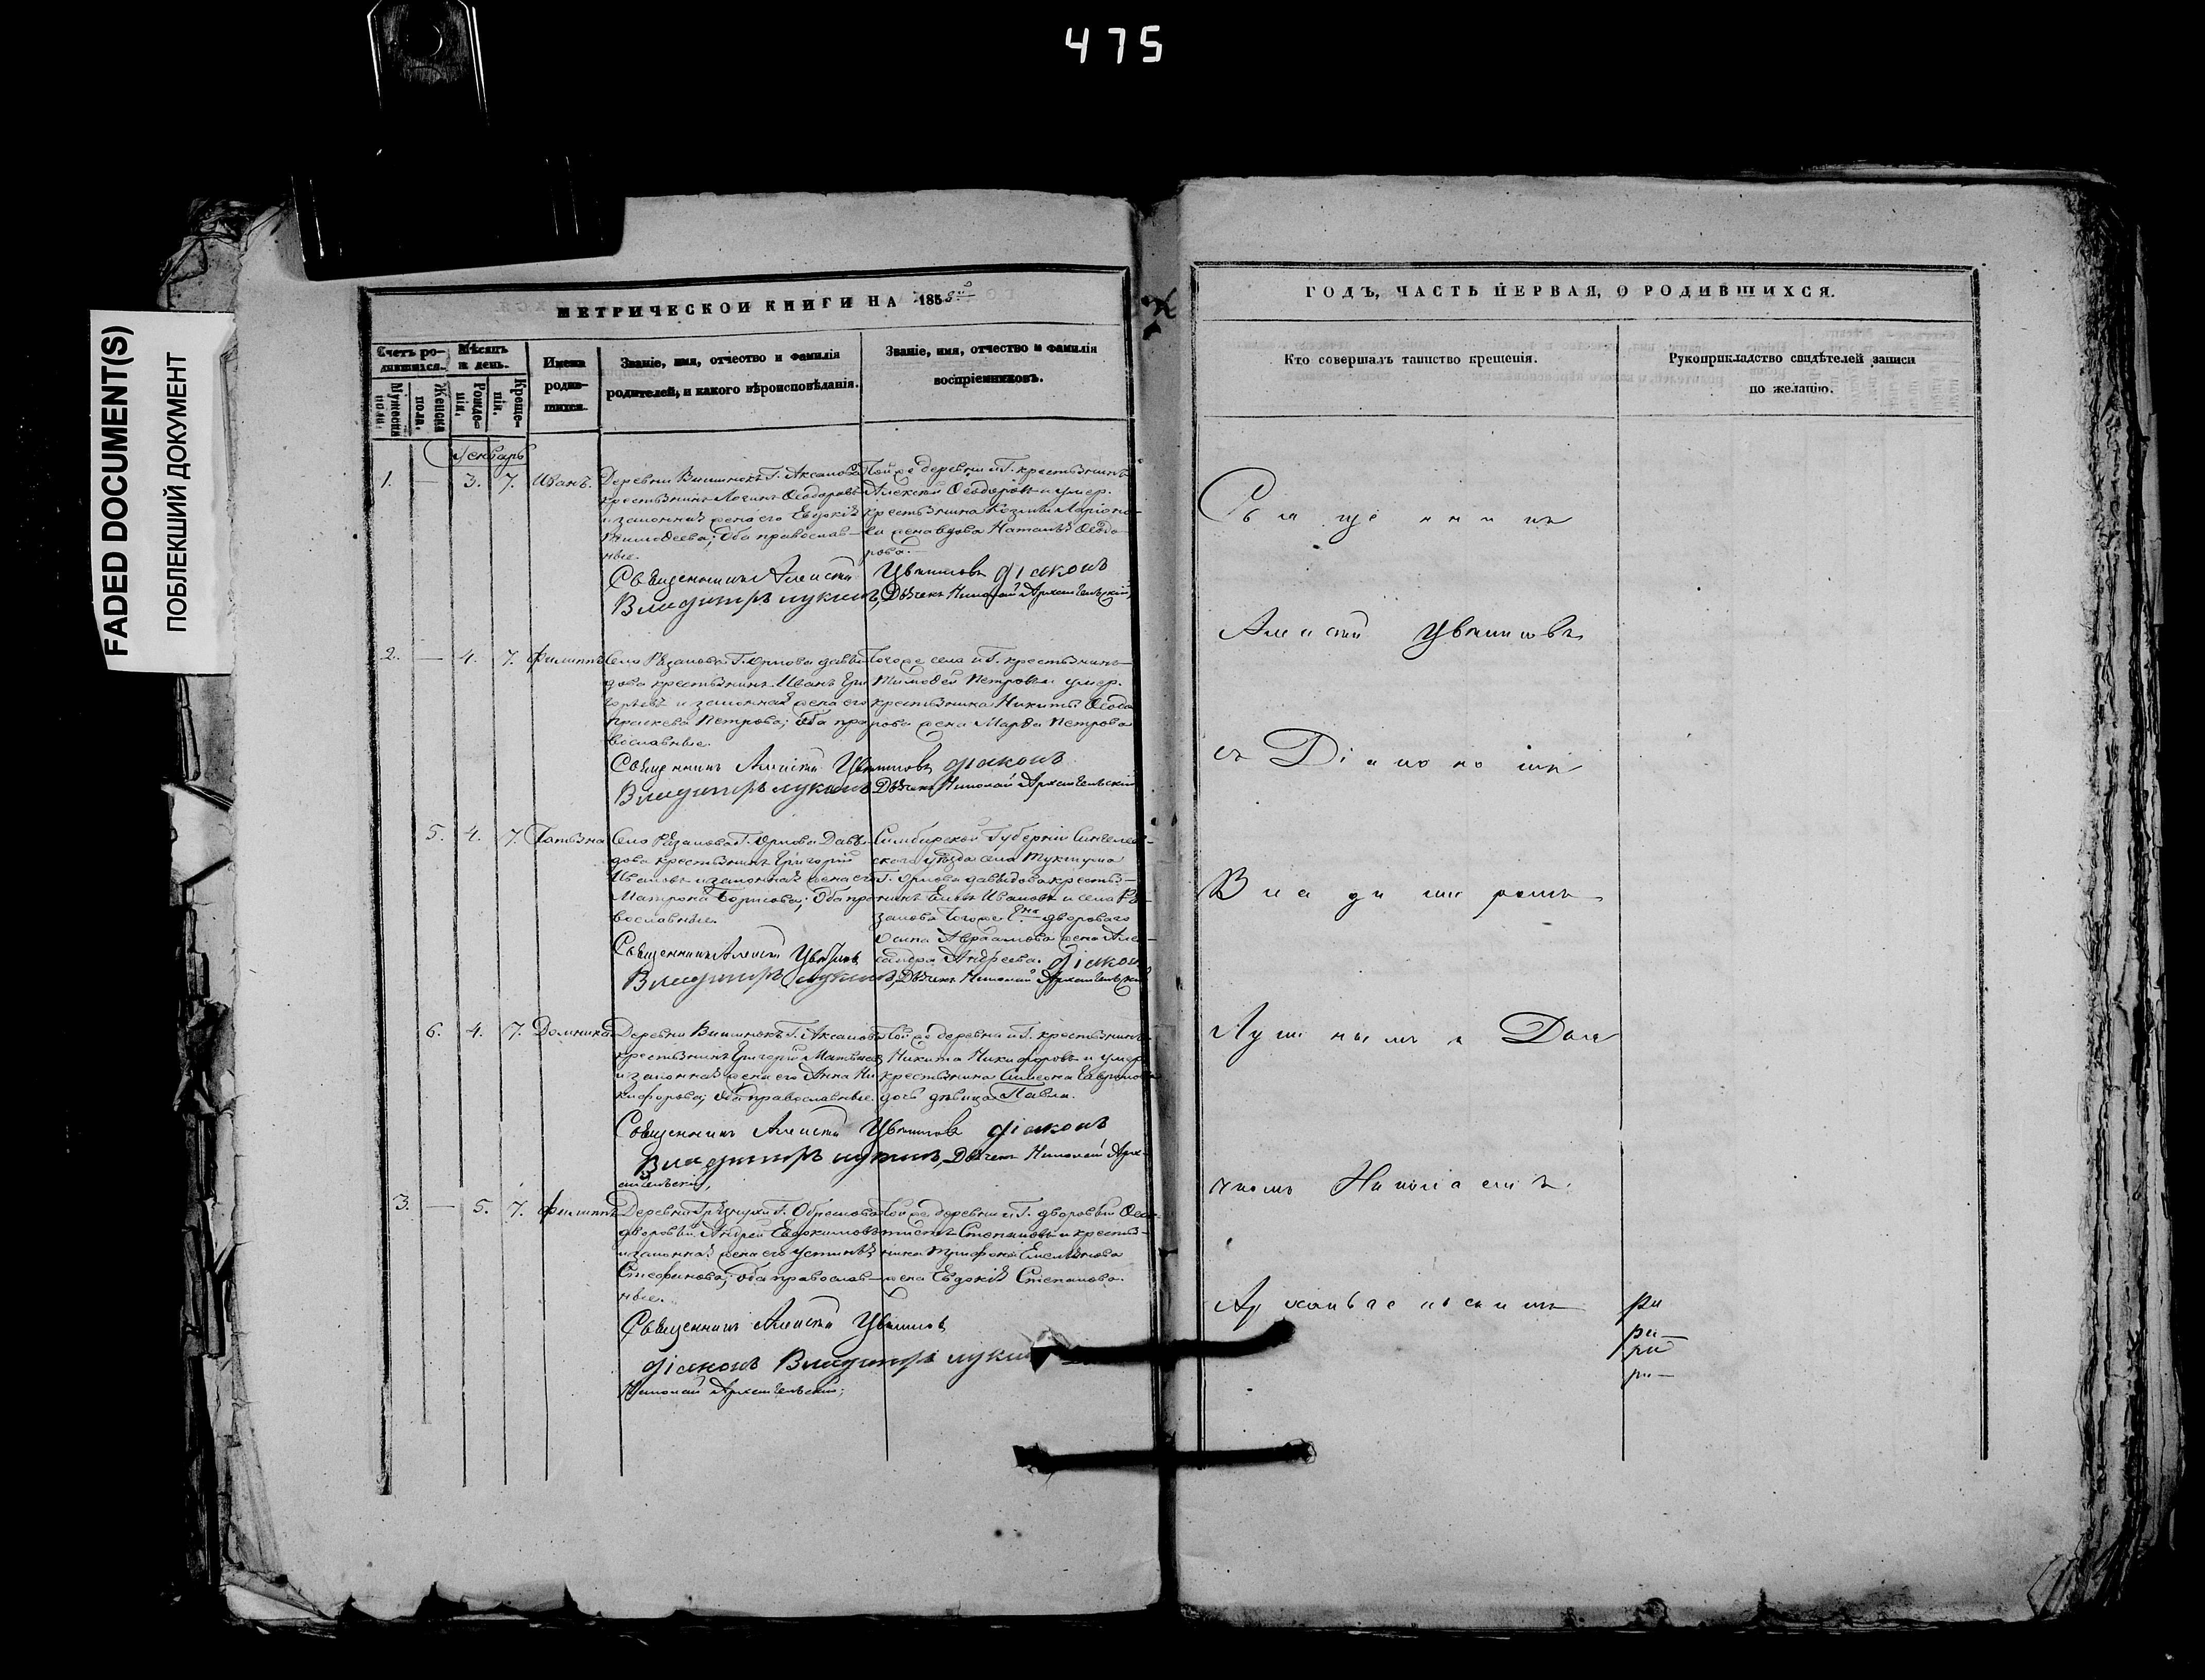 475
FADED DOCUMENT(S)
ПОБЛЕКШИЙ ДОКУМЕНТ
МЕТРИЧЕСКОЙ КНИГИ НА 1858й
Счетъ ро-
дившихся.
Мужеска
пола.
Женска
пола.
Мѣсяцъ
и день.
Рожде-
нія.
Креще-
нія.
Имена
родив-
шихся.
Званіе, имя, отчество и фамилія
родителей, и какого вѣроисповѣданія.
Званіе, имя, отчество и фамилія
воспріемниковъ.
Январь
1. — 3. 7. Иванъ.
Деревни Г. Аксакова
крестьянинъ Логинъ Ѳеодоровъ
и законная жена его Евдокія
Тимоѳеева; оба православ-
ные.
Той же деревни и Г. крестьянинъ
Алексѣй Ѳеодоровъ и умер.
крестьянина Козьмы Ларіоно-
ва жена вдова Наталья Ѳеодо-
рова.
Священникъ Алексѣй Цвѣтковъ діаконъ
Владиміръ Лукинъ, Дьячекъ Николай Архангельскій,
2. — 4. 7. Филиппъ
Село Рязаново Г. Орлова Давы-
дова крестьянинъ Иванъ Гри-
горьевъ и законная жена его
Праскева Петрова; оба пра-
вославные.
Того же села и Г. крестьянинъ
Тимоѳей Петровъ и умер.
крестьянина Никиты Ѳеодо-
рова жена Марѳа Петрова
Священникъ Алексѣй Цвѣтковъ діаконъ
Владиміръ Лукинъ Дьячекъ Николай Архангельскій
5. 4. 7. Татьяна
Село Рязаново Г. Орлова Давы-
дова крестьянинъ Григорій
Ивановъ и законная жена его
Матрона Борисова; оба пра-
вославные.
Симбирской Губерніи Сингилеев-
скаго уѣзда села Тукшума
Г. Орлова Давыдова крестья-
нинъ Ивановъ и села Ря-
занова того же Гна двороваго
Осипа Авраамова жена Алек-
сандра Андреева.
Священникъ Алексѣй Цвѣтковъ діаконъ
Владиміръ Лукинъ, Дьячекъ Николай Архангельскій
6. 4. 7. Домника
Деревни Г. Аксакова
крестьянинъ Григорій Матвѣевъ
и законная жена его Анна Ни-
кифорова; оба православные.
Той же деревни и Г. крестьянинъ
Никита Никифоровъ и умер.
крестьянина Симеона Гаврилова
дочь дѣвица Павла.
Священникъ Алексѣй Цвѣтковъ діаконъ
Владиміръ Лукинъ, Дьячекъ Николай Арх-
ангельскій,
3. — 5. 7. Филиппъ
Деревни Г.
дворовый Андрей Евдокимовъ
и законная жена его Устинья
Стефанова; оба православ-
ные.
Той же деревни и Г. дворовый Ѳеок-
тистъ Степановъ и крестья-
нина Трифона Емельянова
жена Евдокія Степанова.
Священникъ Алексѣй Цвѣтковъ
діаконъ Владиміръ Лукинъ
Николай Архангельскій;
ГОДЪ, ЧАСТЬ ПЕРВАЯ, О РОДИВШИХСЯ.
Кто совершалъ таинство крещенія.
Рукоприкладство свидѣтелей записи
по желанію.
Священникъ
Алексѣй Цвѣтковъ
съ Діакономъ
Владиміромъ
Лукинымъ и Дья
чкомъ Николаемъ
Архангельскимъ